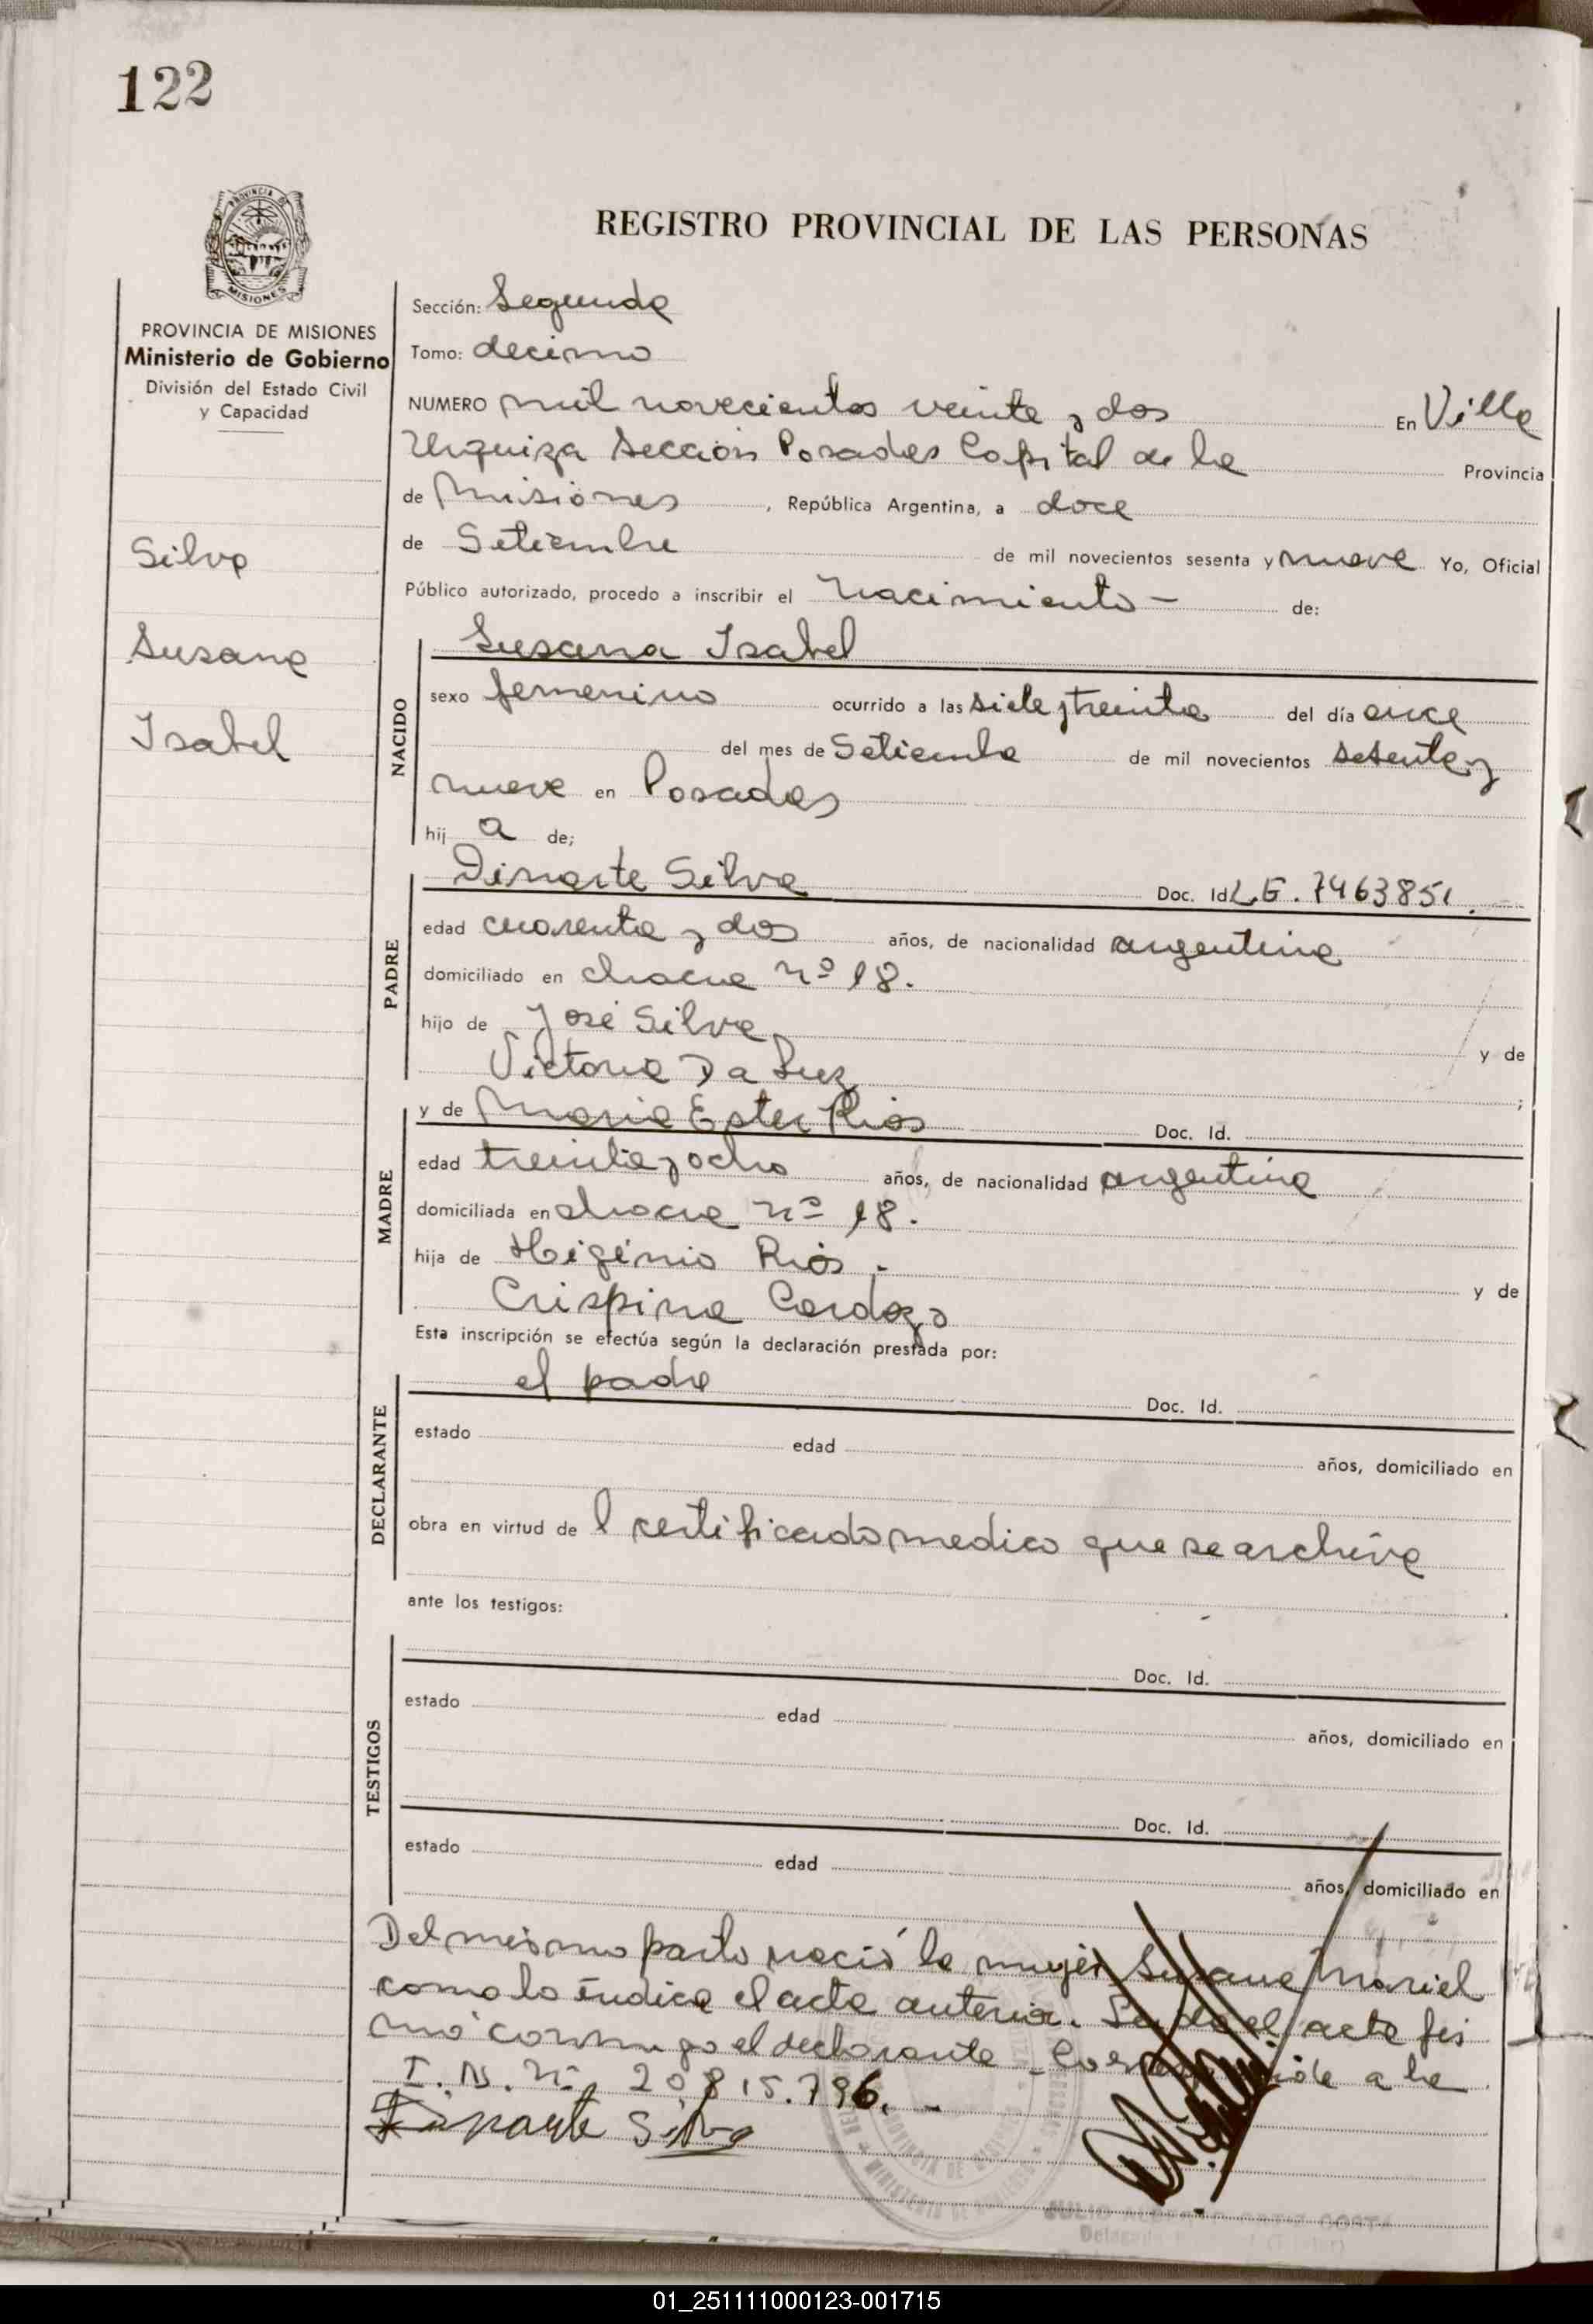 122
REGISTRO PROVINCIAL DE LAS PERSONAS
PROVINCIA DE MISIONES
Ministerio de Gobierno
División del Estado Civil
y Capacidad
Silva
Susana
Isabel
Sección: Segunda
Tomo: decimo
NUMERO mil novecientos veinte y dos En Villa
Urquiza Sección Posadas Capital de la Provincia
de Misiones, República Argentina, a doce
de Setiembre de mil novecientos sesenta y nueve Yo, Oficial
Público autorizado, procedo a inscribir el nacimiento - de:
NACIDO
Susana Isabel
sexo femenino ocurrido a las siete y treinta del día once
del mes de Setiembre de mil novecientos sesenta y
nueve en Posadas
hij a de;
PADRE
Dinarte Silva Doc. Id L.E. 7463851.
edad cuarenta y dos años, de nacionalidad argentina
domiciliado en chacra nº 18.
hijo de José Silva y de
Victoria Da Luz ;
MADRE
y de Maria Ester Rios Doc. Id.
edad treinta y ocho años, de nacionalidad argentina
domiciliada en chacra nº 18.
hija de Higinio Rios. y de
Crispina Cardozo
Esta inscripción se efectúa según la declaración prestada por:
DECLARANTE
el padre Doc. Id.
estado edad años, domiciliado en
obra en virtud de l certificado medico que se archiva
ante los testigos:
TESTIGOS
Doc. Id.
estado edad años, domiciliado en
Doc. Id.
estado edad años, domiciliado en
Del mismo parto nació la mujer Susana Mariel
como lo indica el acta anterior. Leida el acta fir
mó conmigo el declarante - Corresponde a la
I. N. nº 20.815.796. -
Dinarte Silva
01_251111000123-001715